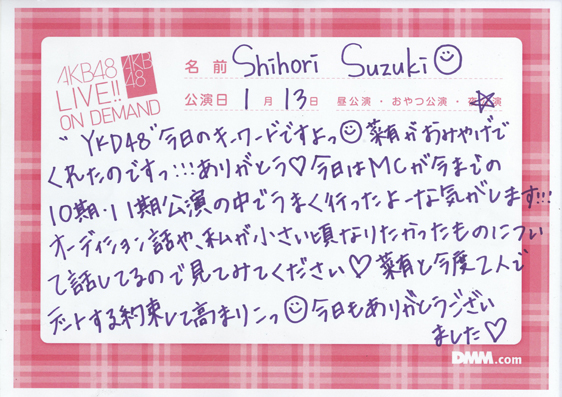 AKB48
LIVE!!
ON DEMAND
AKB
48
名前 Shihori Suzuki
公演日 1月13日 昼公演・おやつ公演・夜公演
"YKD48"今日のキーワードですよっ 菜有がおみやげで
くれたのですっ!!!ありがとう♡今日はMCが今までの
10期・11期公演の中でうまく行ったよーな気がします!!!
オーディション話や、私が小さい頃なりたかったものについ
て話してるので見てみてください♡菜有と今度2人で
デートする約束して高まりこっ 今日もありがとうござい
ました♡
DMM.com